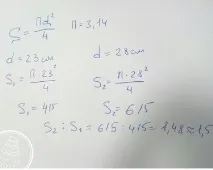 S = πd²/4   π = 3,14
d = 23см   d = 28см
S₁ = π·23²/4   S₂ = π·28²/4
S₁ = 415   S₂ = 615
S₂ : S₁ = 615 : 415 = 1,48 ≈ 1,5